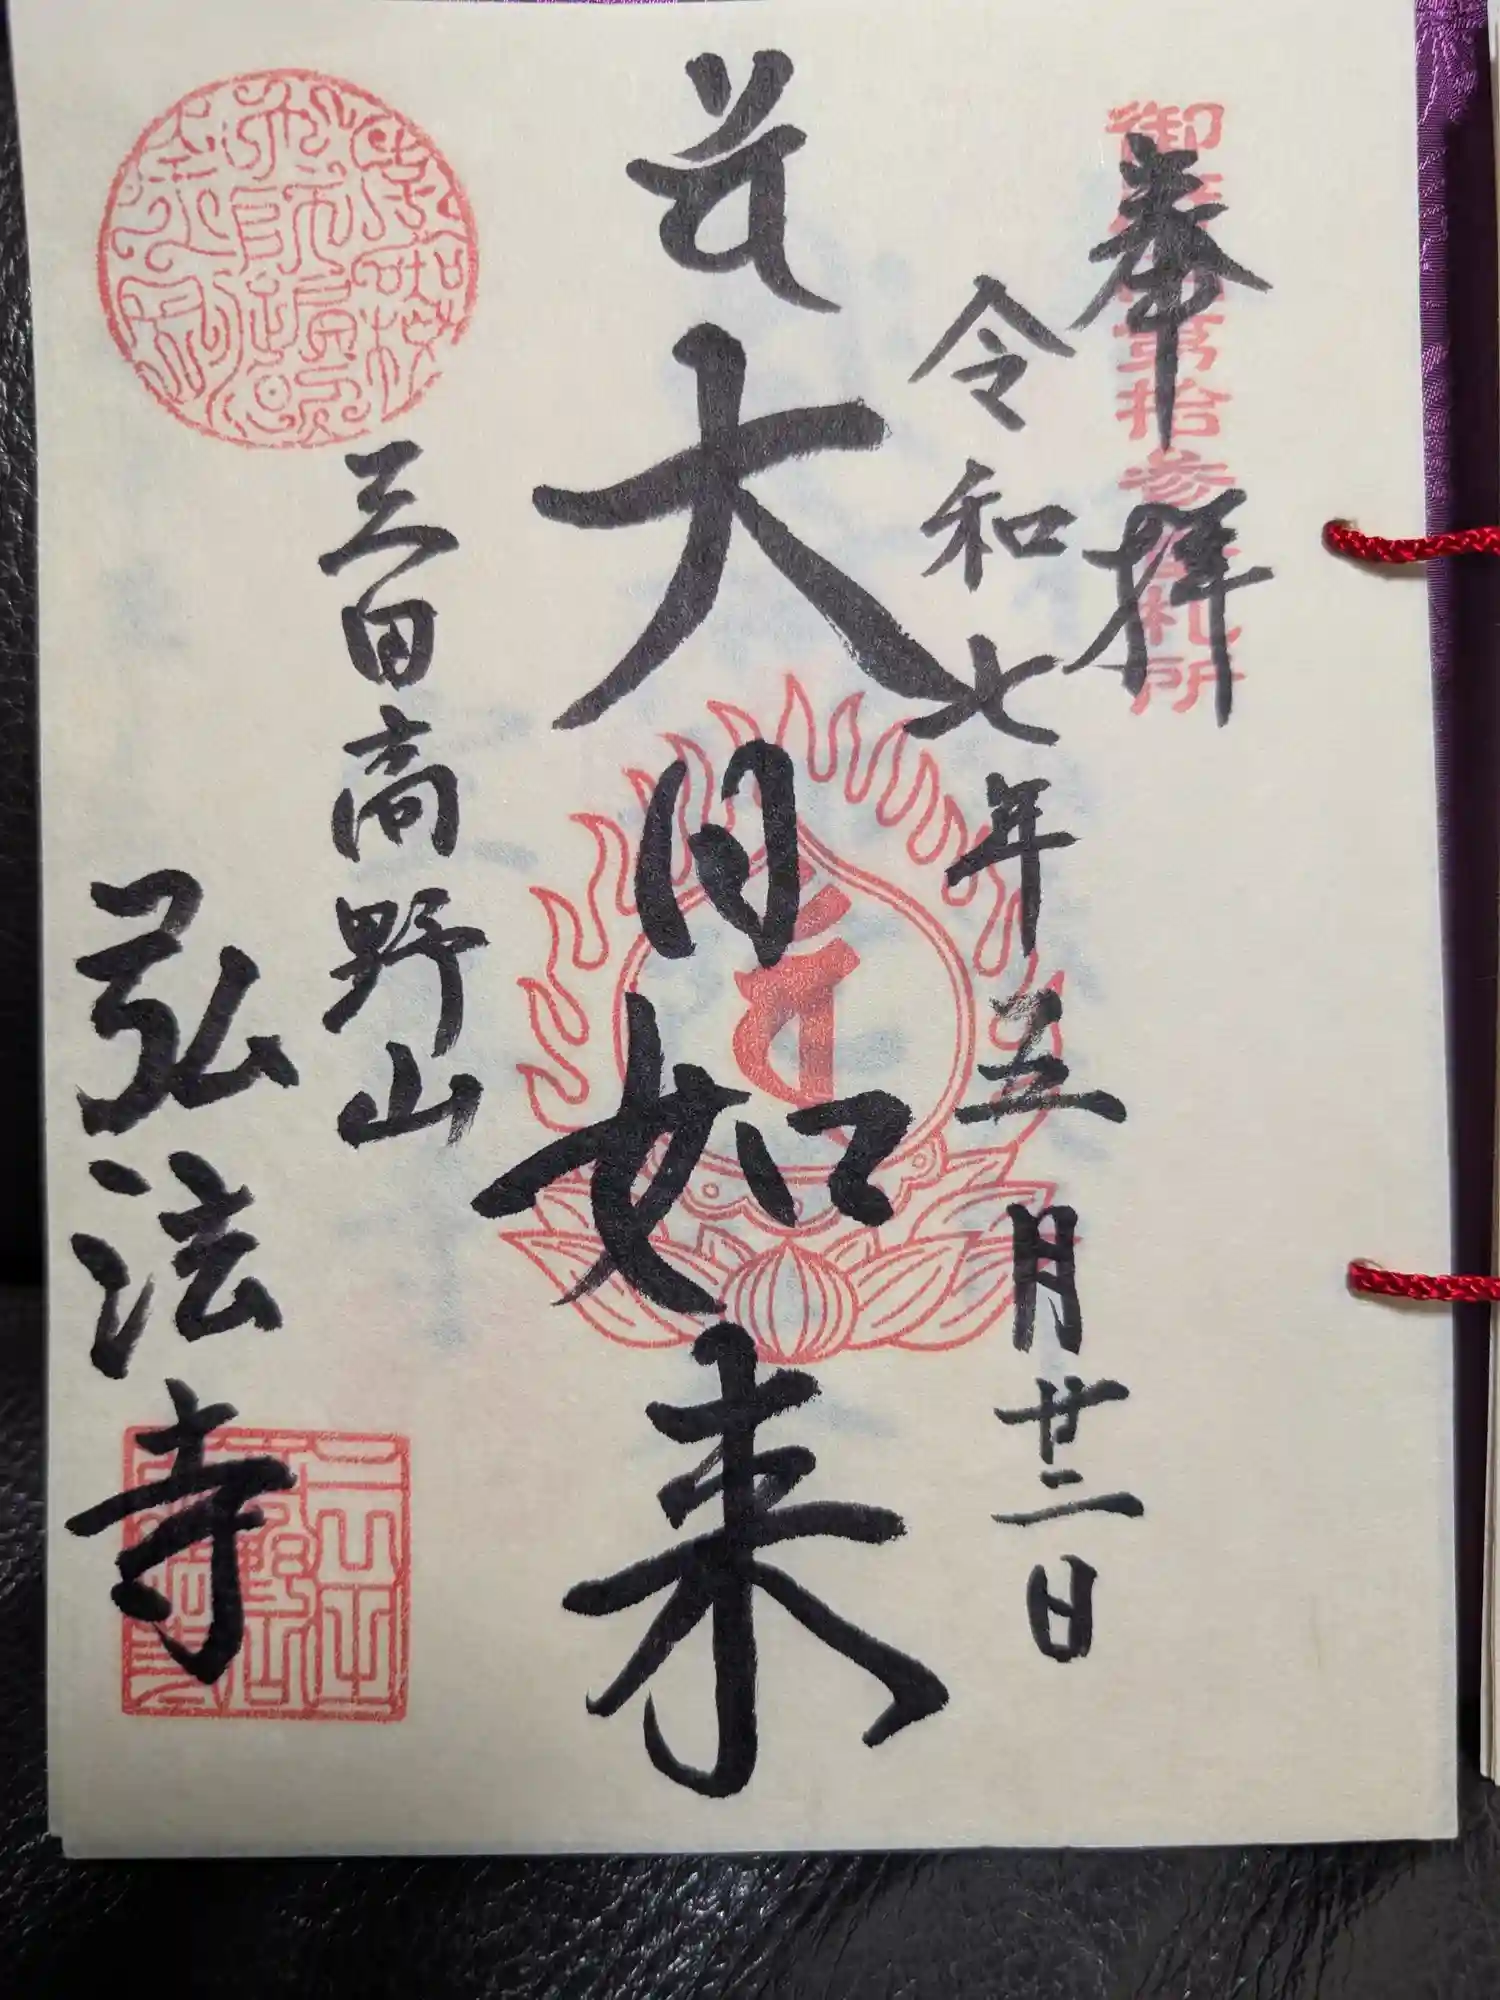 奉拝
第拾参
札所
令和七年五月廿二日
大日如来
三田高野山
弘法寺